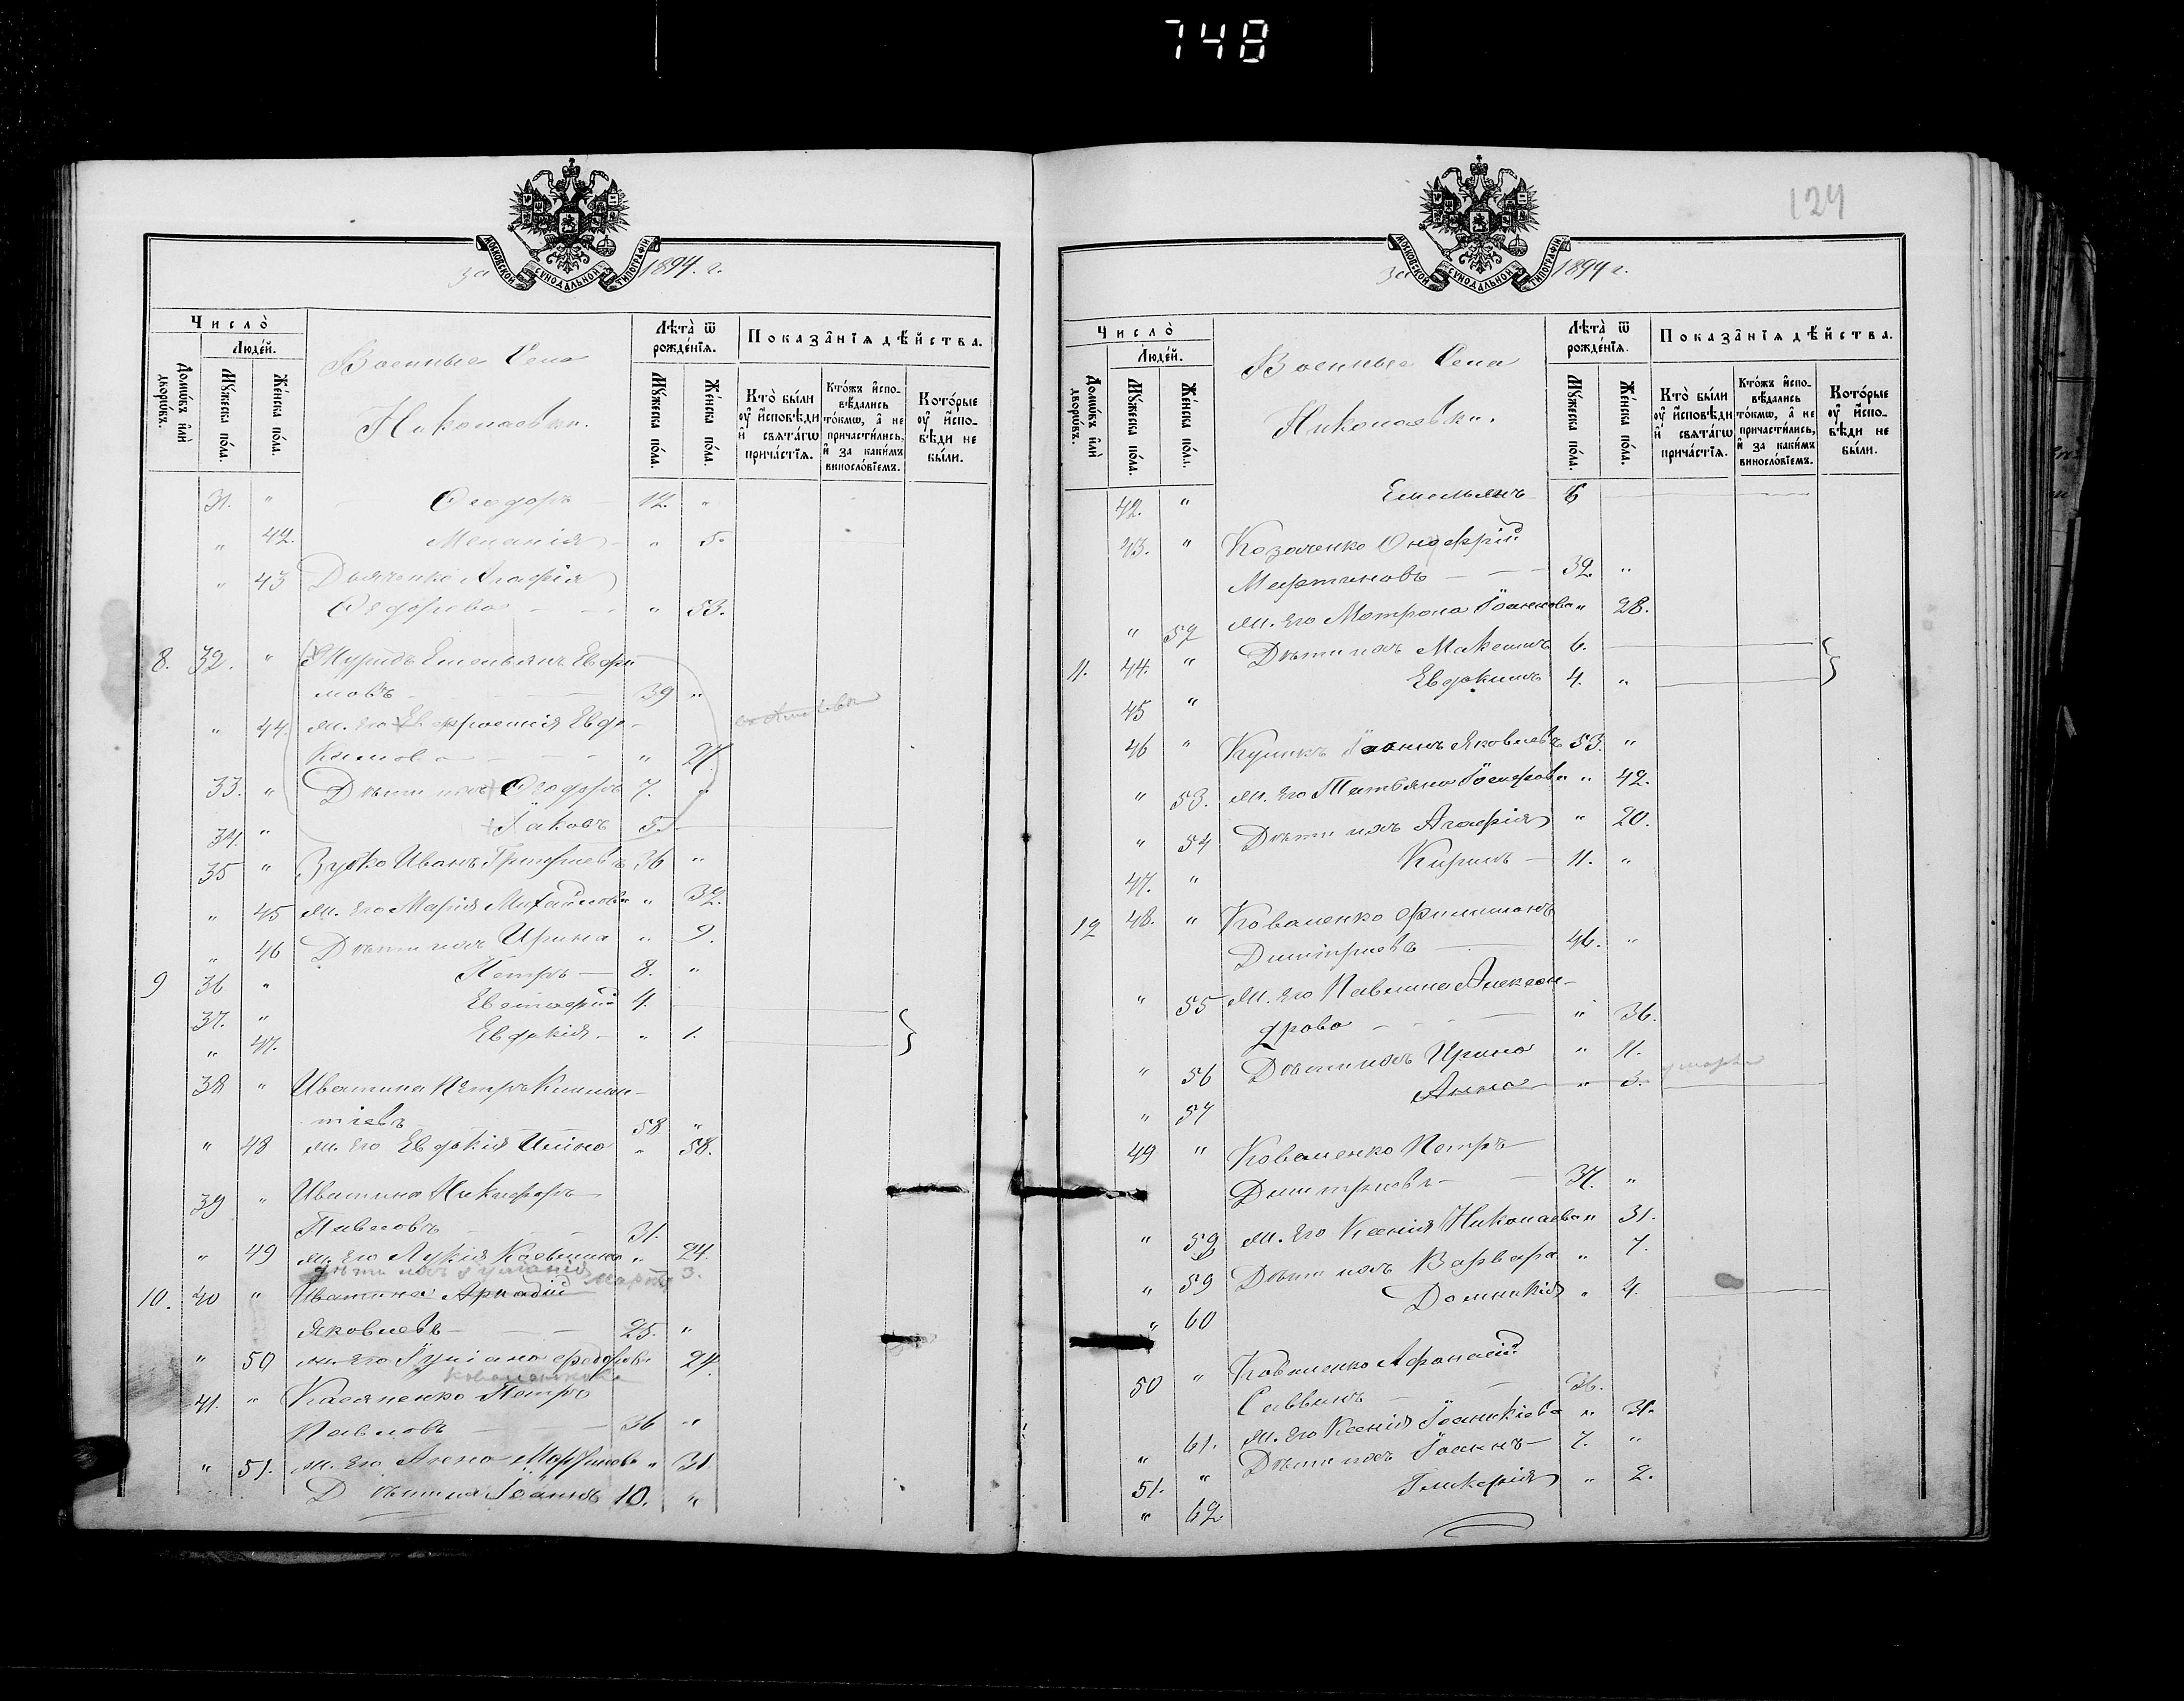 748
124
за 1894. г.
МОСКОВСКОЙ СѴНОДАЛЬНОЙ ТИПОГРАФІИ
Число̀
Людéй.
Домѡ́въ и҆лѝ дворѡ́въ.
Мꙋ́жеска по́ла.
Же́нска по́ла.
Военные Села
Николаевки.
Лѣ́та ѿ рожде́нїѧ.
Мꙋ́жеска по́ла.
Же́нска по́ла.
Показа̑нїѧ дѣ́йства.
Кто̀ бы́ли оу҆ и҆сповѣ́ди и҆ свѧта́гѡ прича́стїѧ.
Кто́жъ и҆сповѣ́дались то́кмѡ, а҆ не причасти́лись, и҆ за каки́мъ виносло́вїемъ.
Кото́рые оу҆ и҆сповѣ́ди не бы́ли.
31. " Ѳеодоръ 12. "
" 42. Меланія " 5.
" 43 Дьяченко Агафія
Ѳедорова " 53.
8. 32. " Емельянъ Евфи-
мовъ 39 "
" 44. ж. его Евфросинія Евдо-
кимова " 27.
33. " Дѣти ихъ Ѳеодоръ 7. "
34. " Іаковъ 5.
35 " Зубко Иванъ Григорьевъ 36 "
" 45 ж. его Марія Михайлова " 32.
" 46 Дѣти ихъ Ирина " 9.
9 36 " Петръ 8. "
37. " Евстафій 4.
" 47. Евдокія " 1.
38 " Иватина Петръ Климен-
тіевъ 58 "
" 48 ж. его Евдокія " 58.
39 " Иватина Никифоръ
Павловъ 31.
" 49 ж. его Лукія " 24.
дѣти ихъ 3.
10. 40 " Иватина Аркадій
Яковлевъ 25. "
" 50 ж. его Іуліана Ѳедорова 24.
41. " Касяненко Петръ
Павловъ 36 "
" 51. ж. его Агена " 31.
Дѣти их Іоаннъ 10. "
за 1894 г.
МОСКОВСКОЙ СѴНОДАЛЬНОЙ ТИПОГРАФІИ
Число̀
Людéй.
Домѡ́въ и҆лѝ дворѡ́въ.
Мꙋ́жеска по́ла.
Же́нска по́ла.
Военные Села
Николаевки.
Лѣ́та ѿ рожде́нїѧ.
Мꙋ́жеска по́ла.
Же́нска по́ла.
Показа̑нїѧ дѣ́йства.
Кто̀ бы́ли оу҆ и҆сповѣ́ди и҆ свѧта́гѡ прича́стїѧ.
Кто́жъ и҆сповѣ́дались то́кмѡ, а҆ не причасти́лись, и҆ за каки́мъ виносло́вїемъ.
Кото́рые оу҆ и҆сповѣ́ди не бы́ли.
42. " Емельянъ 6
43. " Козаченко Онофрій
Мартиновъ 32. "
" 52 ж. его Матрона Іоаннова " 28.
11. 44. " Дѣти ихъ Максимъ 6.
45 " Евдокимъ 4. "
46 " Куликъ Іоаннъ Яковлевъ 53. "
" 53. ж. его Татьяна Іосифова " 42.
" 54 Дѣти ихъ Агафія " 20.
47. " Кирилъ 11. "
12 48. " Коваленко Филимонъ
Димитріевъ 46. "
" 55 ж. его Павлина Алексан-
дрова " 36.
" 56 Дѣти ихъ Ирина " 11.
" 57 Анна " 3. умерла
49 " Коваленко Петръ
Димитріевъ 37. "
" 59 ж. его Ксенія Николаева " 31.
" 59 Дѣти ихъ Варвара " 7.
" 60 Домникія " 4.
50 " Коваленко Афанасій
Саввинъ 36.
" 61. ж. его Ксенія Іоаникіева " 31.
51. " Дѣти ихъ Іоаннъ 7. "
" 62 Гликерія " 2.